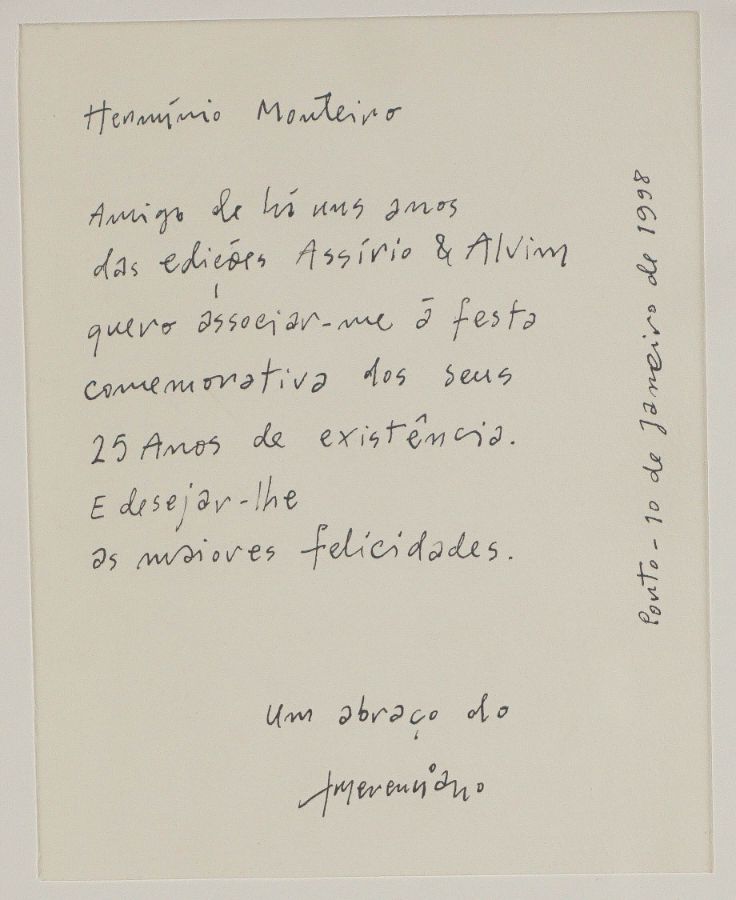 Hermínio Monteiro
Amigo de há uns anos
das edições Assírio & Alvim
quero associar-me à festa
comemorativa dos seus
25 Anos de existência.
E desejar-lhe
as maiores felicidades.
Um abraço do
Porto - 10 de Janeiro de 1998